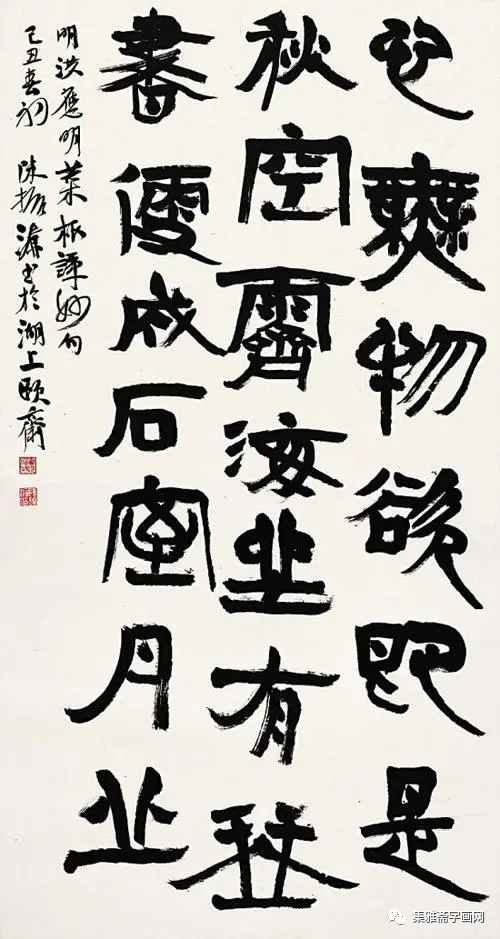 心無物欲即是
秋空霽海坐有琴
書便成石室丹丘
明洪應明菜根譚妙句
己丑春初 陳振濂书於湖上頤齋
集雅斋字画网